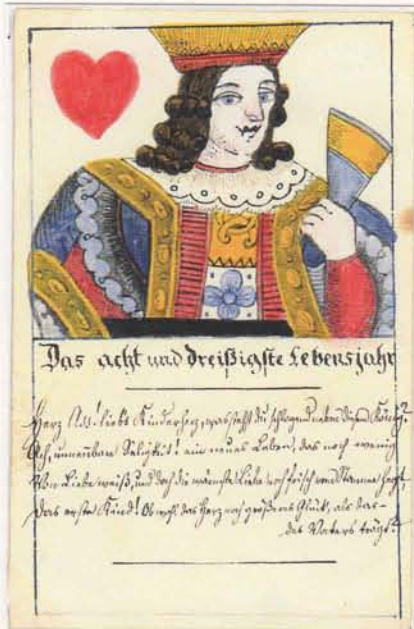 Das acht und dreißigste Lebensjahr
Herz Ass! liebs Kinderherz, was stehst du schlagend neben diesem König?
Ach, unnennbare Seligkeit! ein neues Leben, das noch wenig
Von Liebe weiß, und doch die wärmste Liebe noch frisch vom Stamme hegt,
Das erste Kind! Ob wohl das Herz noch größeres Glück, als das
des Vaters trägt?